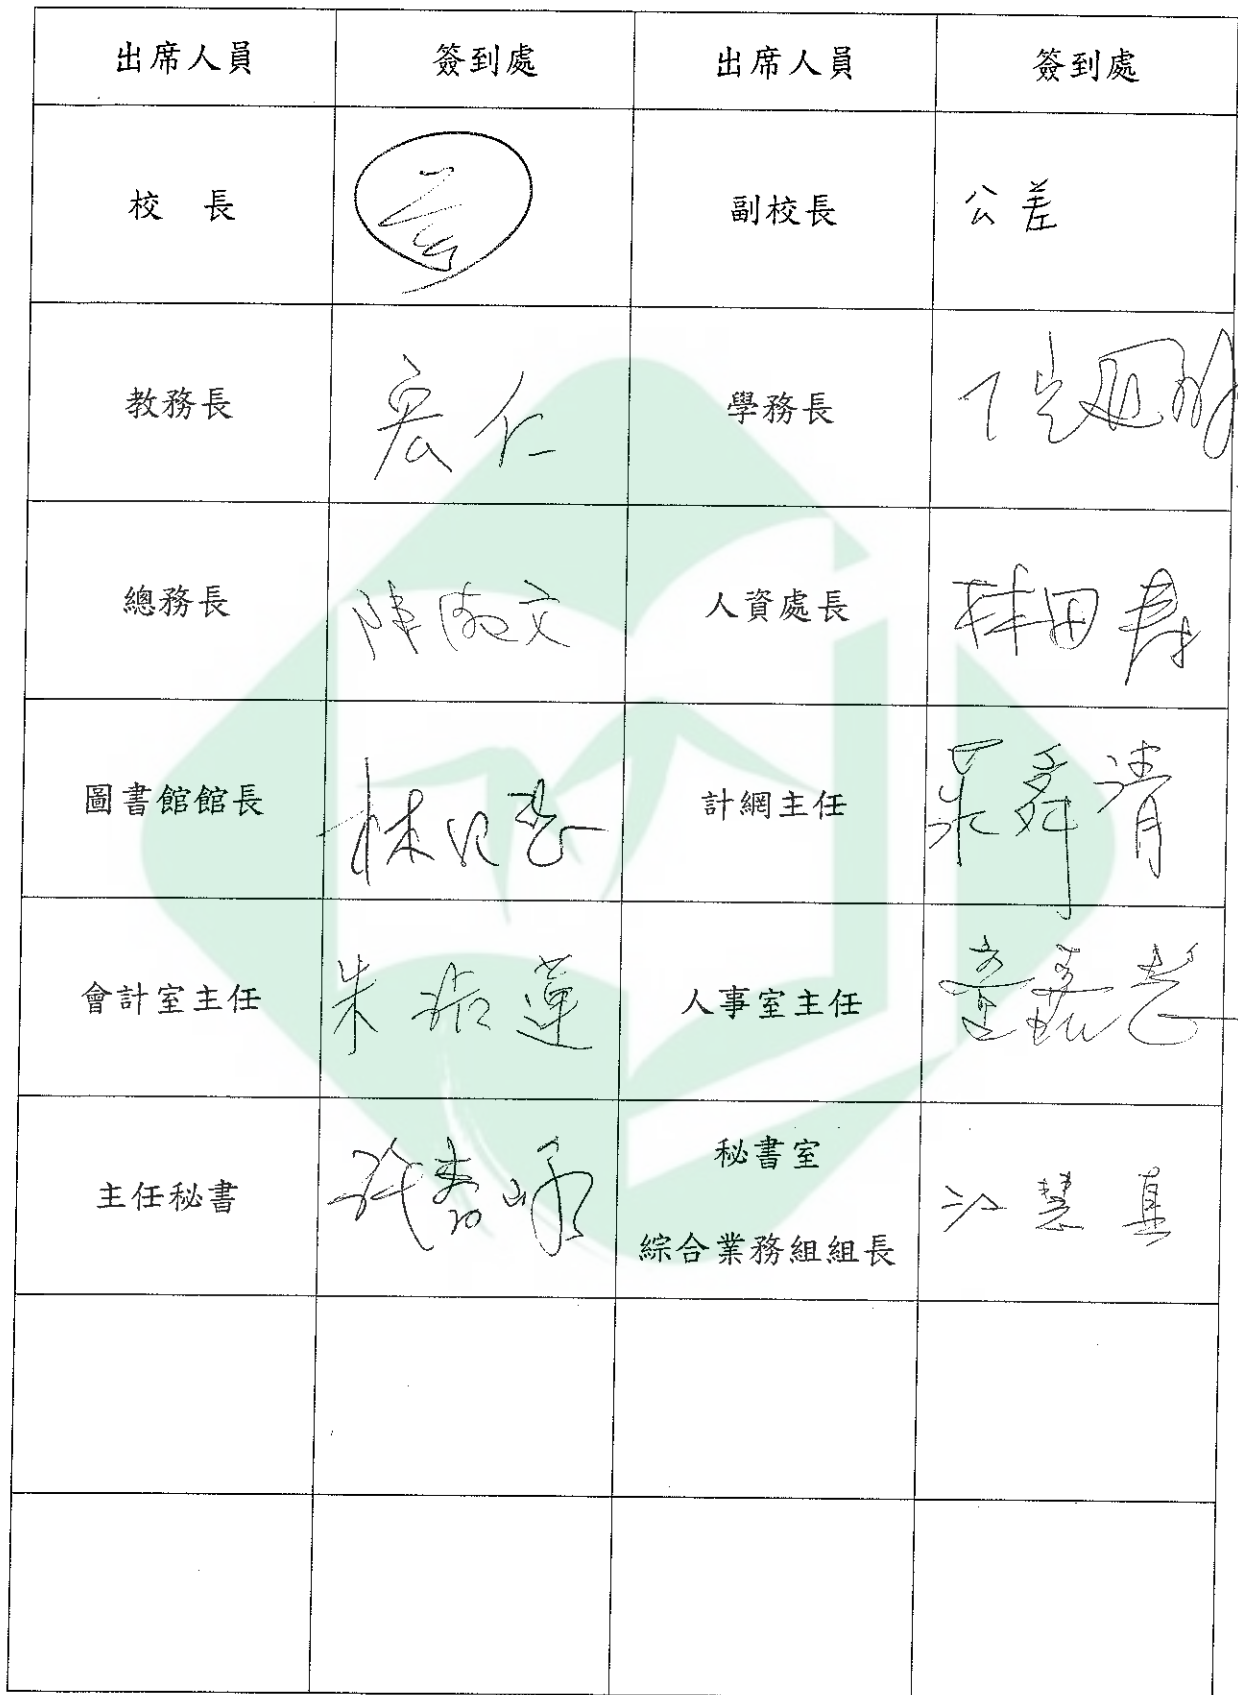 出席人員 簽到處 出席人員 簽到處
校 長 副校長 公差
教務長 宏仁 學務長
總務長 陳淑文 人資處長 林田壽
圖書館館長 計網主任 吳舜清
會計室主任 朱 蓮 人事室主任
主任秘書 秘書室
綜合業務組組長 江慧真